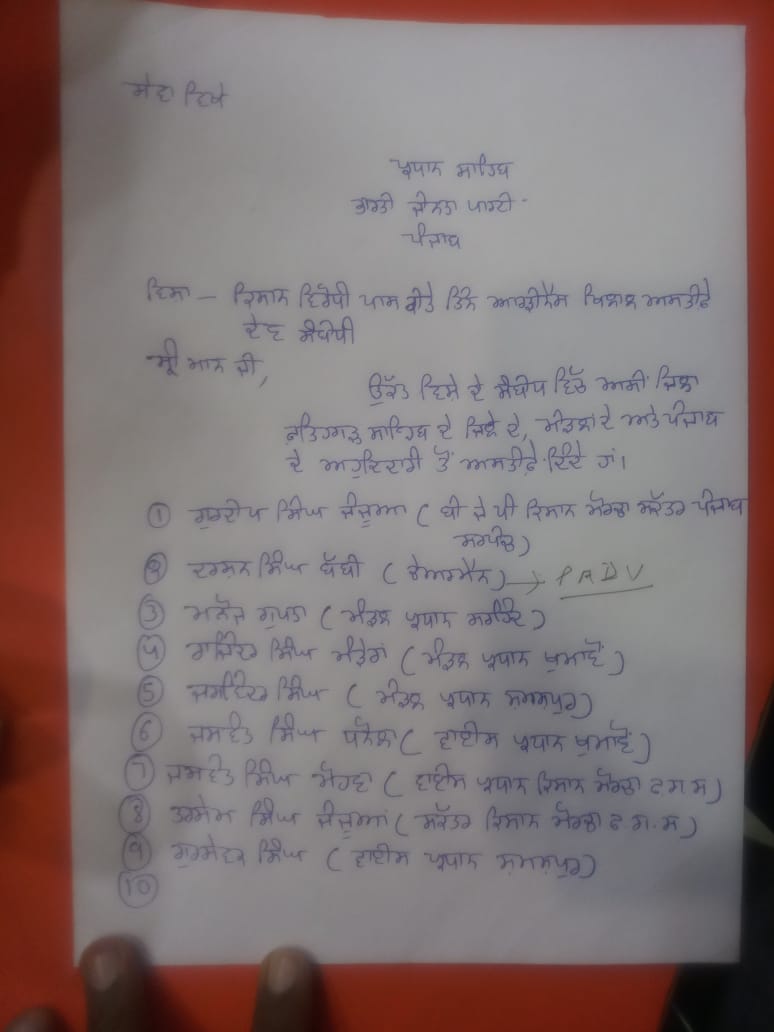 ਸੇਵਾ ਵਿਖੇ
ਪ੍ਰਧਾਨ ਸਾਹਿਬ
ਭਾਰਤੀ ਜੰਨਤਾ ਪਾਰਟੀ
ਪੰਜਾਬ
ਵਿਸ਼ਾ — ਕਿਸਾਨ ਵਿਰੋਧੀ ਪਾਸ ਕੀਤੇ ਤਿੰਨ ਆਰਡੀਨੈਂਸ ਖਿਲਾਫ ਅਸਤੀਫੇ
ਦੇਣ ਸੰਬੰਧੀ
ਸ੍ਰੀ ਮਾਨ ਜੀ,
ਉਕੱਤ ਵਿਸੇ ਦੇ ਸੰਬੰਧ ਵਿੱਚ ਅਸੀਂ ਜਿਲਾ
ਫਤਿਹਗੜ੍ਹ ਸਾਹਿਬ ਦੇ ਜਿਲੇ ਦੇ, ਮੰਡਲਾਂ ਦੇ ਅਤੇ ਪੰਜਾਬ
ਦੇ ਅਹੁਦੇਦਾਰੀ ਤੋਂ ਅਸਤੀਫੇ ਦਿੰਦੇ ਹਾਂ।
① ਗੁਰਦੀਪ ਸਿੰਘ ਜੰਜੂਆ (ਬੀ ਜੇ ਪੀ ਕਿਸਾਨ ਮੋਰਚਾ ਸਕੱਤਰ ਪੰਜਾਬ
ਸਰਪੰਚ)
② ਦਰਸ਼ਨ ਸਿੰਘ ਬੱਬੀ (ਚੇਅਰਮੈਨ) → PADV
③ ਮਨੋਜ ਗੁਪਤਾ (ਮੰਡਲ ਪ੍ਰਧਾਨ ਸਰਹਿੰਦ)
④ ਰਾਜਿੰਦਰ ਸਿੰਘ (ਮੰਡਲ ਪ੍ਰਧਾਨ ਖੁਮਾਣੋਂ)
⑤ ਜਸਵਿੰਦਰ ਸਿੰਘ (ਮੰਡਲ ਪ੍ਰਧਾਨ ਸ਼ਮਸ਼ਪੁਰ)
⑥ ਜਸਵੰਤ ਸਿੰਘ (ਵਾਈਸ ਪ੍ਰਧਾਨ ਖੁਮਾਣੋਂ)
⑦ ਜਸਵੰਤ ਸਿੰਘ (ਵਾਈਸ ਪ੍ਰਧਾਨ ਕਿਸਾਨ ਮੋਰਚਾ ਫ ਗ ਸ)
⑧ ਤਰਸੇਮ ਸਿੰਘ ਜੰਜੂਆਂ (ਸਕੱਤਰ ਕਿਸਾਨ ਮੋਰਚਾ ਫ ਗ. ਸ)
⑨ ਗੁਰਮੇਲ ਸਿੰਘ (ਵਾਈਸ ਪ੍ਰਧਾਨ ਸ਼ਮਸ਼ਪੁਰ)
⑩